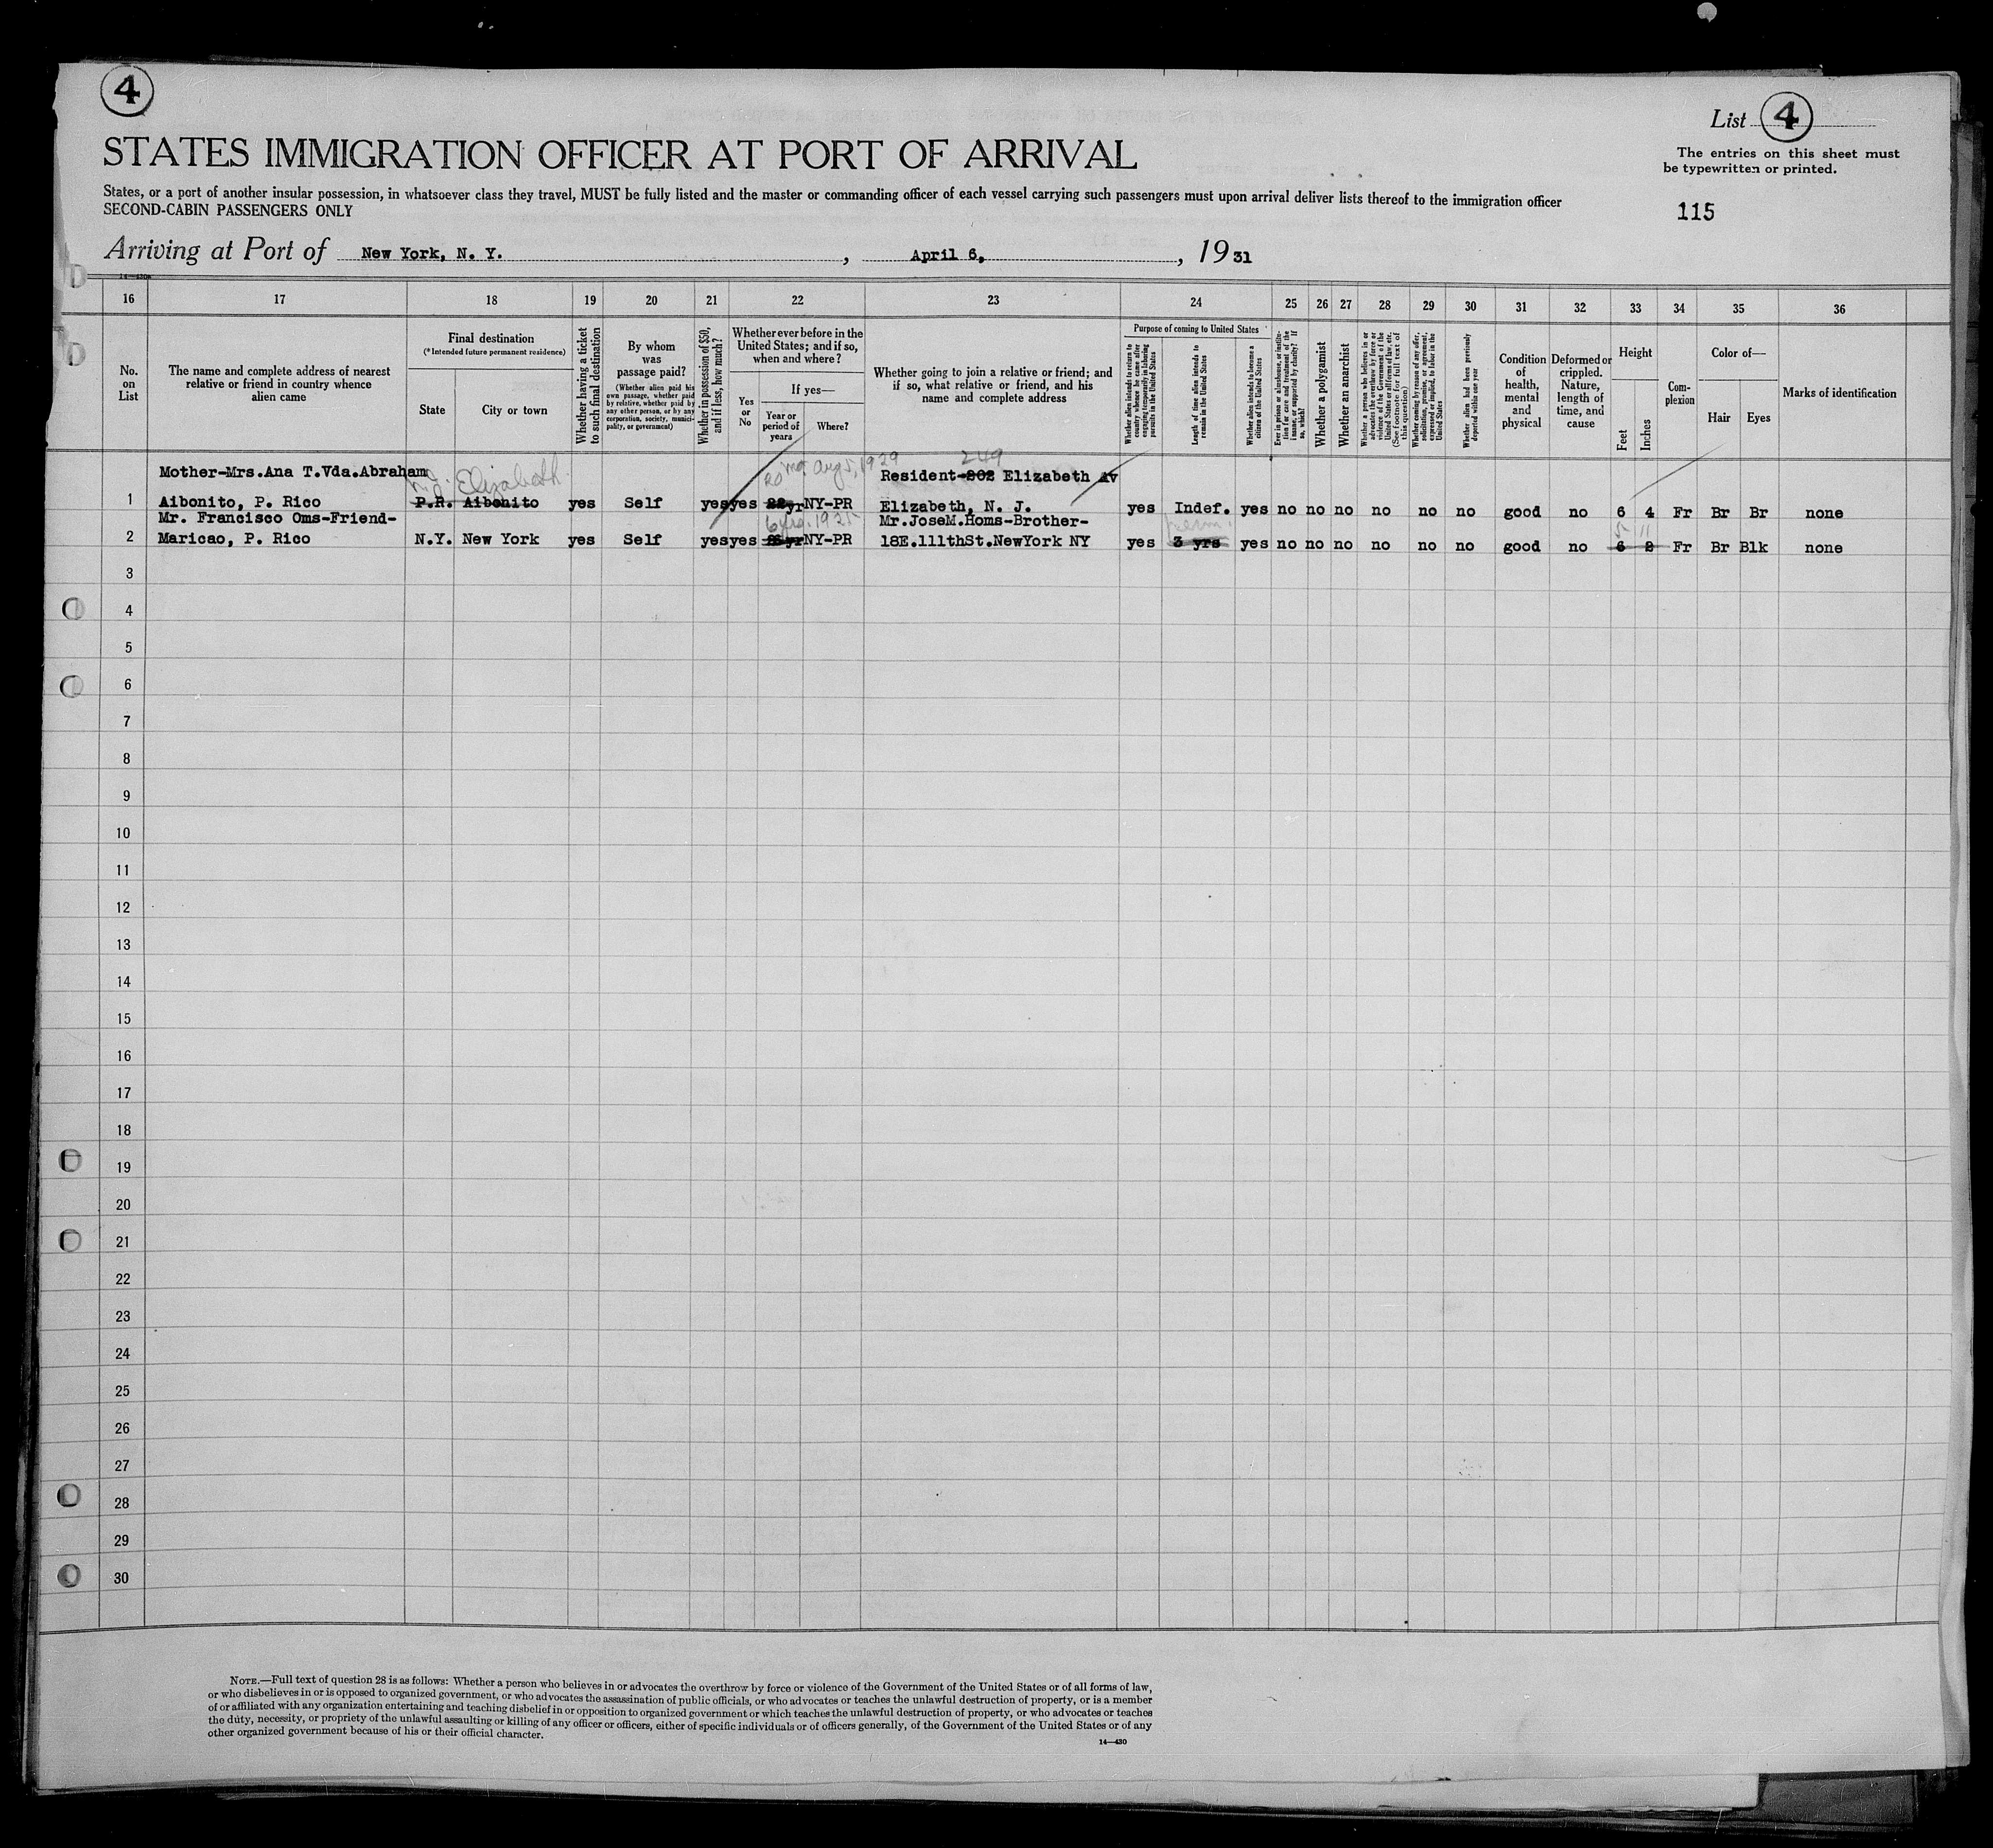 4
List 4
STATES IMMIGRATION OFFICER AT PORT OF ARRIVAL
The entries on this sheet must
be typewritten or printed.
States, or a port of another insular possession, in whatsoever class they travel, MUST be fully listed and the master or commanding officer of each vessel carrying such passengers must upon arrival deliver lists thereof to the immigration officer
SECOND-CABIN PASSENGERS ONLY
115
Arriving at Port of New York, N. Y. , April 6, , 19 31
16 17 18 19 20 21 22 23 24 25 26 27 28 29 30 31 32 33 34 35 36
No. on List
The name and complete address of nearest relative or friend in country whence alien came
Final destination
(*Intended future permanent residence)
State
City or town
Whether having a ticket to such final destination
By whom was passage paid?
(Whether alien paid his own passage, whether paid by relative, whether paid by any other person, or by any corporation, society, municipality, or government)
Whether in possession of $50, and if less, how much?
Whether ever before in the United States; and if so, when and where?
Yes or No
If yes—
Year or period of years
Where?
Whether going to join a relative or friend; and if so, what relative or friend, and his name and complete address
Purpose of coming to United States
Whether alien intends to return to country whence he came after engaging temporarily in laboring pursuits in the United States
Length of time alien intends to remain in the United States
Whether alien intends to become a citizen of the United States
Ever in prison or almshouse, or institution for care and treatment of the insane, or supported by charity? If so, which?
Whether a polygamist
Whether an anarchist
Whether a person who believes in or advocates the overthrow by force or violence of the Government of the United States or all forms of law, etc. (See footnote for full text of this question)
Whether coming by reason of any offer, solicitation, promise, or agreement, expressed or implied, to labor in the United States
Whether alien had been previously deported within one year
Condition of health, mental and physical
Deformed or crippled. Nature, length of time, and cause
Height
Feet
Inches
Complexion
Color of—
Hair
Eyes
Marks of identification
Mother-Mrs.Ana T.Vda.Abraham Elizabeth Aug 5, 1929 Resident-202 249 Elizabeth Av
1 Aibonito, P. Rico P.R. Aibonito yes Self yes yes NY-PR Elizabeth, N. J. yes Indef. yes no no no no no no good no 6 4 Fr Br Br none
Mr. Francisco Oms-Friend- 1925 Mr.JoseM.Homs-Brother- 5 11
2 Maricao, P. Rico N.Y. New York yes Self yes yes NY-PR 18E.111thSt.NewYork NY yes 3 yrs yes no no no no no no good no 6 2 Fr Br Blk none
3
4
5
6
7
8
9
10
11
12
13
14
15
16
17
18
19
20
21
22
23
24
25
26
27
28
29
30
NOTE.—Full text of question 28 is as follows: Whether a person who believes in or advocates the overthrow by force or violence of the Government of the United States or of all forms of law,
or who disbelieves in or is opposed to organized government, or who advocates the assassination of public officials, or who advocates or teaches the unlawful destruction of property, or is a member
of or affiliated with any organization entertaining and teaching disbelief in or opposition to organized government or which teaches the unlawful destruction of property, or who advocates or teaches
the duty, necessity, or propriety of the unlawful assaulting or killing of any officer or officers, either of specific individuals or of officers generally, of the Government of the United States or of any
other organized government because of his or their official character.
14—430